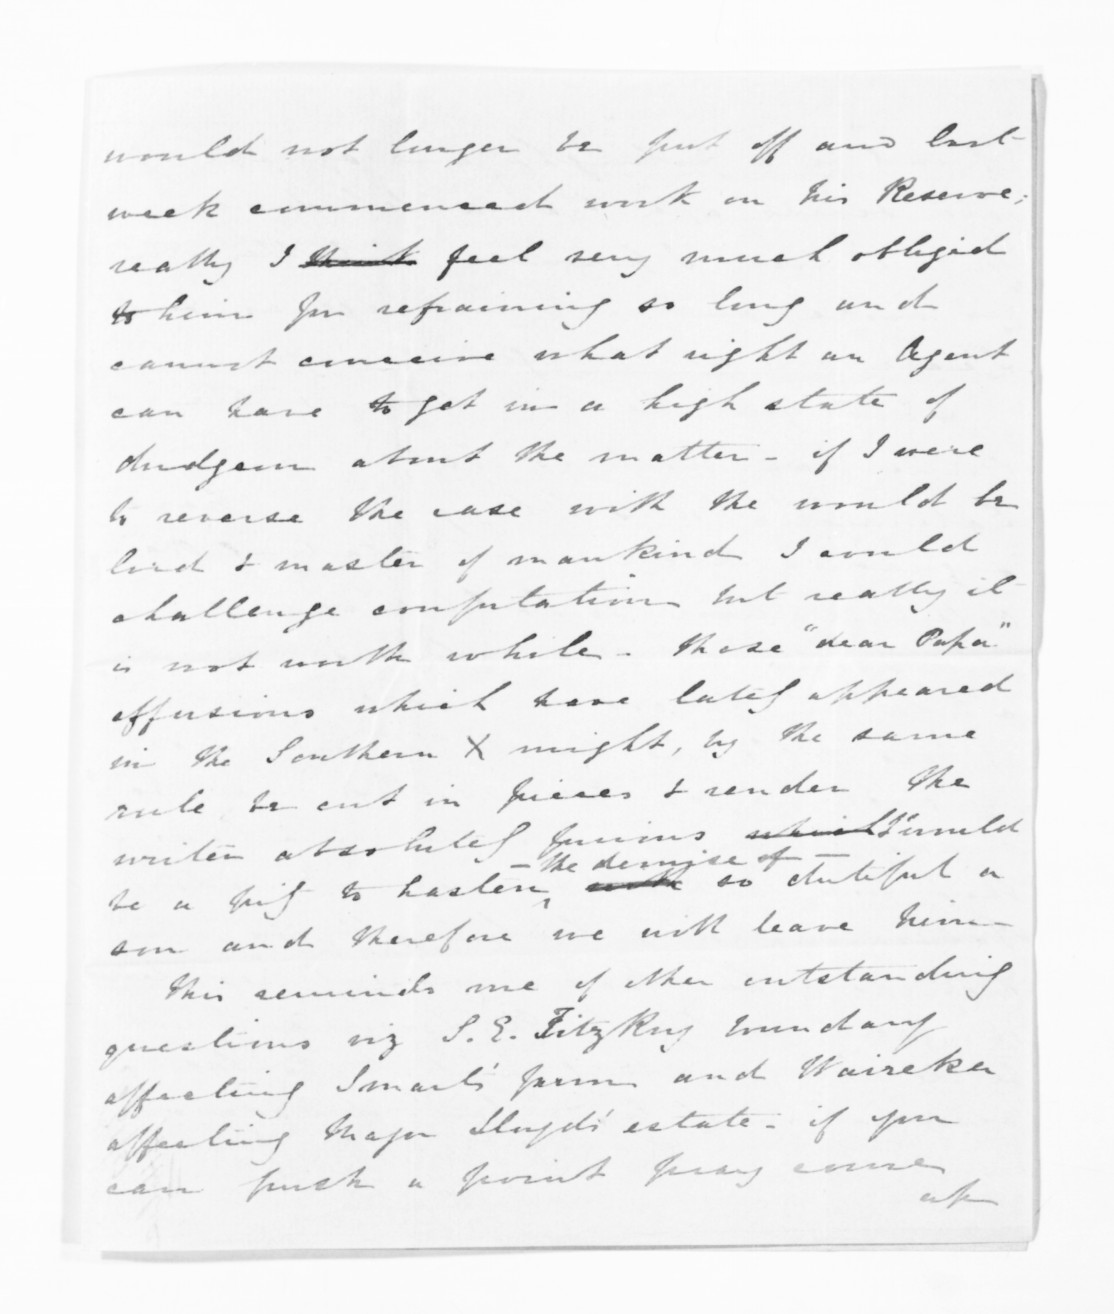 would not longer be put off and last
week commenced work on his Reserve;
really I think feel very much obliged
to him for refraining so long and
cannot conceive what right an Agent
can have to get in a high state of
dudgeon about the matter - if I were
to reverse the case with the would be
lord & master of mankind I could
challenge confutation but really it
is not worth while - those "dear Papa"
effusions which have lately appeared
in the Southern X might, by the same
rule be cut in pieces & render the
writer absolutely furious which I would
- the demise of -
be a pity to hasten with so dutiful a
son and therefore we will leave him -
This reminds me of other outstanding
questions viz S.E. FitzRoy boundary
affecting Smart's farm and Waireka
affecting Major Lloyd's estate - if you
can push a point pray come
up